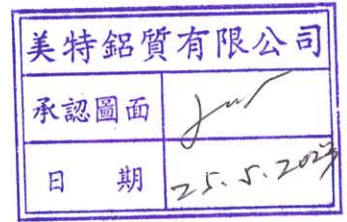 美特鋁質有限公司
承認圖面
日期 25.5.2023